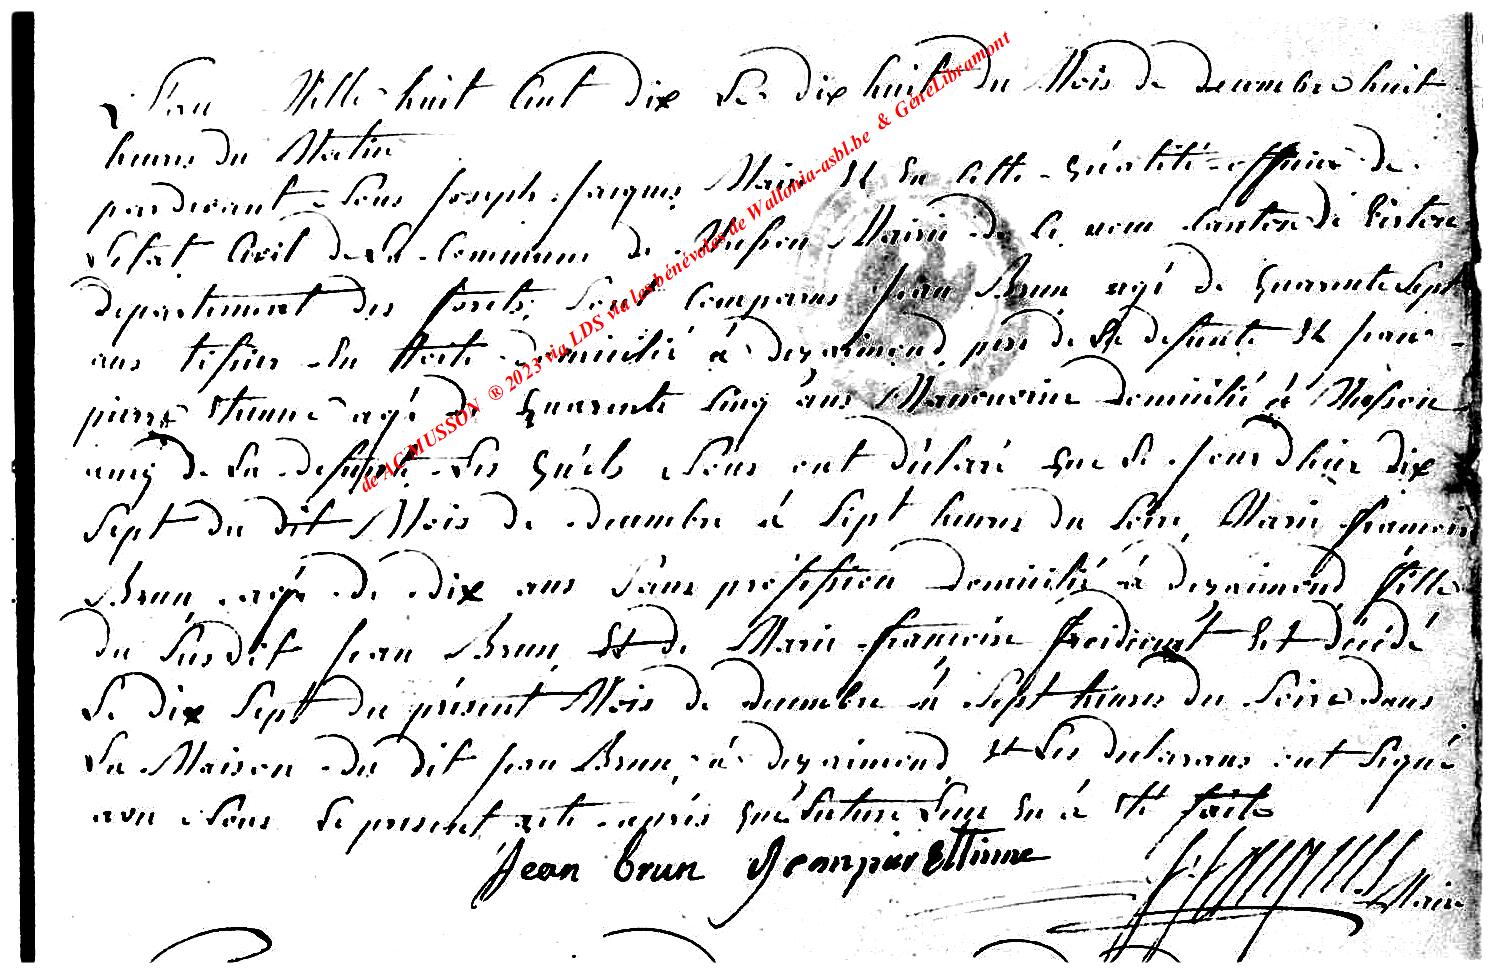 L'an Mille huit Cent dix Le dix huit du Mois de decembre huit
heures du Matin
pardevant Nous Joseph Jacques Maire Et En Cette Qualité officier de
L'etat Civil de La Commune de Musson Mairie de Ce nom Canton de Virton
departement des forêts, Sont Comparus Jean Brun agé de Quarante Sept
ans tissier En toile domicilié à deraimond père de La defunte Et Jean
pierre Etienne agé de Quarente Cinq ans Manouvrier domicilié à Musson
amy de La defunte Les Quels Nous ont déclaré Que Le Jourdhuie dix
Sept du dit Mois de decembre à Sept heures du Soire Marie françoise
Brun agée de dix ans Sans profession domiciliée à deraimond fille
du Susdit Jean Brun Et de Marie françoise Est décédé
Le dix Sept du présent Mois de decembre à Sept heures du Soire dans
La Maison du dit Jean Brun, à deraimond Et Les declarans ont Signé
avec Nous Le present acte après Que Lecture Leur En à Eté faite
Jean brun Jeanpier Ettinne
JJacques Maire
de AC MUSSON ® 2023 via LDS via les bénévoles de Wallonia-asbl.be & GéneLibramont